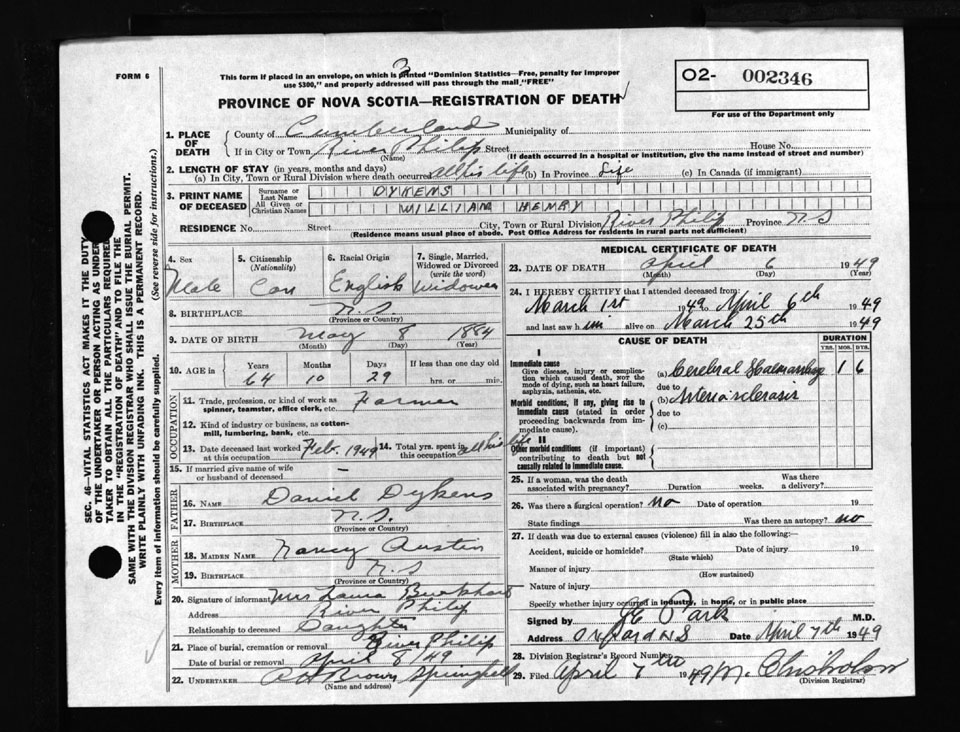 FORM 6
This form if placed in an envelope, on which is printed "Dominion Statistics—Free, penalty for improper
use $300," and properly addressed will pass through the mail "FREE"
3
O2- 002346
PROVINCE OF NOVA SCOTIA—REGISTRATION OF DEATH
For use of the Department only
1. PLACE OF DEATH
County of Cumberland Municipality of
If in City or Town River Philip Street House No.
(Name) (If death occurred in a hospital or institution, give the name instead of street and number)
2. LENGTH OF STAY (in years, months and days)
(a) In City, Town or Rural Division where death occurred all his life (b) In Province Life (c) In Canada (if immigrant)
3. PRINT NAME OF DECEASED
Surname or Last Name DYKENS
All Given or Christian Names WILLIAM HENRY
RESIDENCE No. Street City, Town or Rural Division River Philip Province N.S
(Residence means usual place of abode. Post Office Address for residents in rural parts not sufficient)
4. Sex Male
5. Citizenship (Nationality) Can
6. Racial Origin English
7. Single, Married, Widowed or Divorced (write the word) Widower
8. BIRTHPLACE N.S.
(Province or Country)
9. DATE OF BIRTH May 8 1884
(Month) (Day) (Year)
10. AGE in Years Months Days If less than one day old
64 10 29 hrs. or min.
OCCUPATION
11. Trade, profession, or kind of work as
spinner, teamster, office clerk, etc. Farmer
12. Kind of industry or business, as cotton-
mill, lumbering, bank, etc.
13. Date deceased last worked at this occupation Feb. 1949
14. Total yrs. spent in this occupation all his life
15. If married give name of wife
or husband of deceased —
FATHER
16. NAME Daniel Dykens
17. BIRTHPLACE N.S.
(Province or Country)
MOTHER
18. MAIDEN NAME Nancy Austin
19. BIRTHPLACE N.S
(Province or Country)
20. Signature of informant Mrs Laura
Address River Philip
Relationship to deceased Daughter
21. Place of burial, cremation or removal River Philip
Date of burial or removal April 8/49
22. UNDERTAKER Brown Springfield
(Name and address)
MEDICAL CERTIFICATE OF DEATH
23. DATE OF DEATH April 6 1949
(Month) (Day) (Year)
24. I HEREBY CERTIFY that I attended deceased from:
March 1st 1949 to April 6th 1949
and last saw him alive on March 25th 1949
CAUSE OF DEATH
DURATION
YRS. MOS. DYS.
I
Immediate cause
Give disease, injury or complica-
tion which caused death, not the
mode of dying, such as heart failure,
asphyxia, asthenia, etc.
(a) Cerebral Haemorrhage 1 6
due to
Morbid conditions, if any, giving rise to
immediate cause (stated in order
proceeding backwards from im-
mediate cause).
(b) Arteriosclerosis
due to
(c)
II
Other morbid conditions (if important)
contributing to death but not
causally related to immediate cause.
25. If a woman, was the death
associated with pregnancy? Duration weeks. Was there a delivery?
26. Was there a surgical operation? no Date of operation 19
State findings Was there an autopsy? no
27. If death was due to external causes (violence) fill in also the following:—
Accident, suicide or homicide? Date of injury 19
(State which)
Manner of injury
(How sustained)
Nature of injury
Specify whether injury occurred in industry, in home, or in public place
Signed by Park M.D.
Address Oxford N S Date April 7th 1949
28. Division Registrar's Record Number
29. Filed April 7th 1949 M. Chisholm
(Division Registrar)
SEC. 46—VITAL STATISTICS ACT MAKES IT THE DUTY
OF THE UNDERTAKER OR PERSON ACTING AS UNDER-
TAKER TO OBTAIN ALL THE PARTICULARS REQUIRED
IN THE "REGISTRATION OF DEATH" AND TO FILE THE
SAME WITH THE DIVISION REGISTRAR WHO SHALL ISSUE THE BURIAL PERMIT.
WRITE PLAINLY WITH UNFADING INK. THIS IS A PERMANENT RECORD.
Every item of information should be carefully supplied. (See reverse side for instructions.)